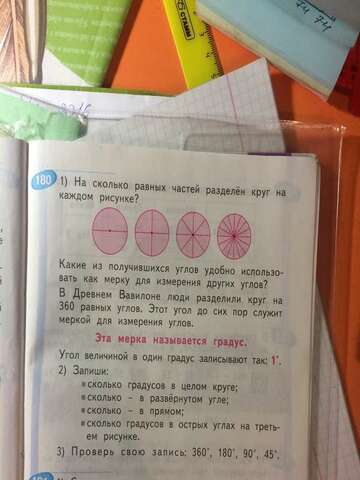 СТАММ
180
1) На сколько равных частей разделён круг на
каждом рисунке?
Какие из получившихся углов удобно использо-
вать как мерку для измерения других углов?
В Древнем Вавилоне люди разделили круг на
360 равных углов. Этот угол до сих пор служит
меркой для измерения углов.
Эта мерка называется градус.
Угол величиной в один градус записывают так: 1°.
2) Запиши:
сколько градусов в целом круге;
сколько – в развёрнутом угле;
сколько – в прямом;
сколько градусов в острых углах на треть-
ем рисунке.
3) Проверь свою запись: 360°, 180°, 90°, 45°.